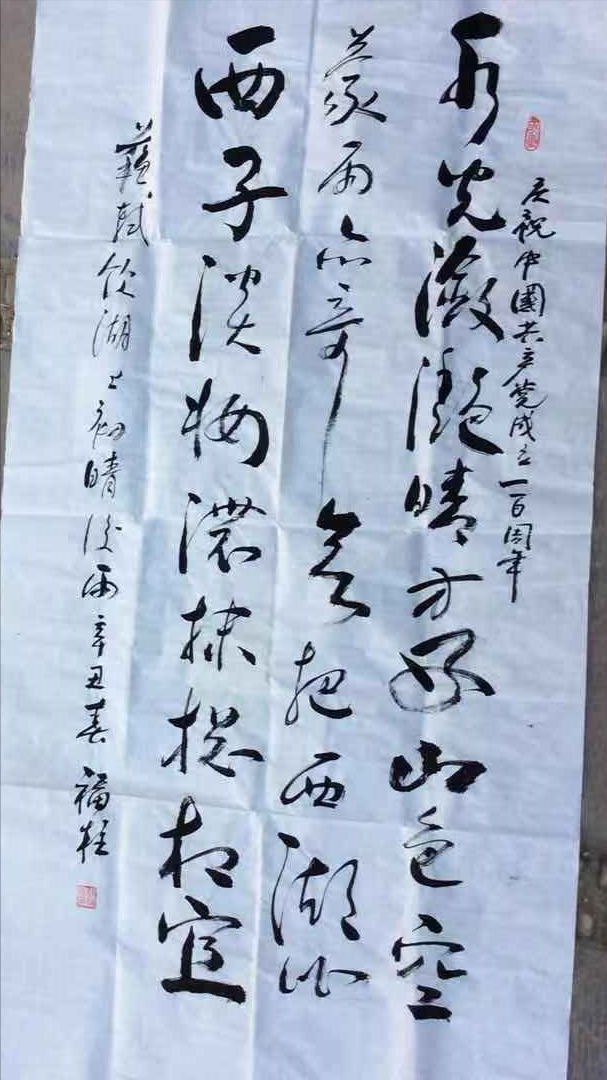 庆祝中國共产党成立一百周年
水光潋滟晴方好山色空
蒙雨亦奇欲把西湖比
西子淡妆濃抹揔相宜
蘇轼饮湖上初晴後雨辛丑春福